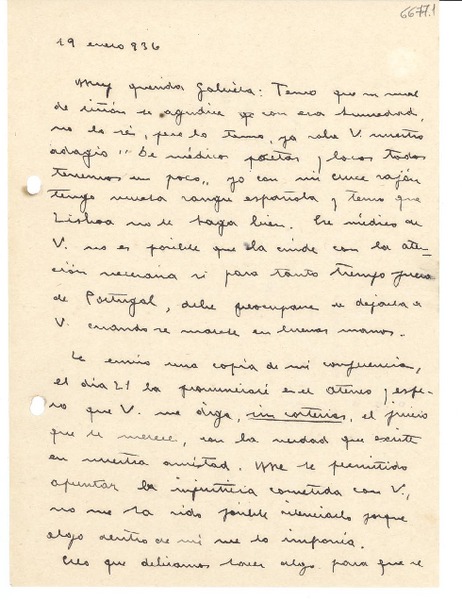 6677.1
19 enero 936
Muy querida Gabriela: Temo que su mal
de riñón se agudice ya con esa humedad,
no lo sé, pero lo temo, ya sabe V. nuestro
adagio "De médicos poetas y locos todos
tenemos un poco", yo con mi cruce sajón
tengo mucha sangre española y temo que
Lisboa no le haga bien. Ese médico de
V. no es posible que la cuide con la aten-
ción necesaria si pasa tanto tiempo fuera
de Portugal, debe preocuparse de dejarla a
V. cuando se marche en buenos manos.
Le envío una copia de mi conferencia,
el día 21 la pronunciaré en el Ateneo y espe-
ro que V. me diga, sin cortesías, el juicio
que le merece, con la verdad que existe
en nuestra amistad. Me he permitido
apuntar la injusticia cometida con V.,
no me ha sido posible silenciarlo porque
algo dentro de mí me lo imponía.
Creo que debíamos hacer algo para que se